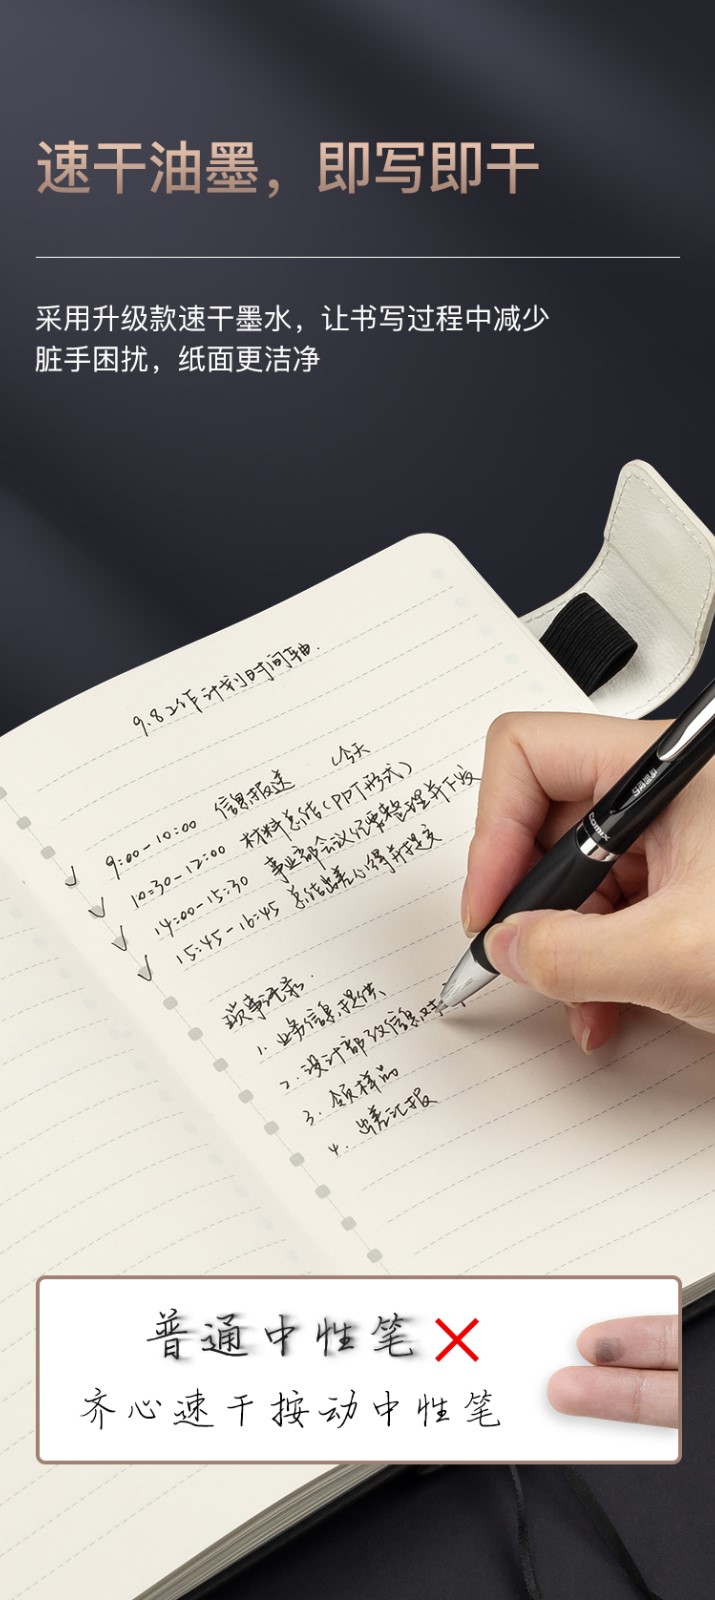 速干油墨，即写即干
采用升级款速干墨水，让书写过程中减少
脏手困扰，纸面更洁净
9.8工作计划时间轴.
9:00-10:00 信息报送 今天
10:30-12:00 材料总结(PPT形式)
14:00-15:30 事业部会议纪要整理并下发
15:45-16:45 总结出差心得并提交
琐事记录.
1. 业务信息提供
2. 设计部改信息
3. 领样品
4. 出差汇报
comix
普通中性笔
齐心速干按动中性笔